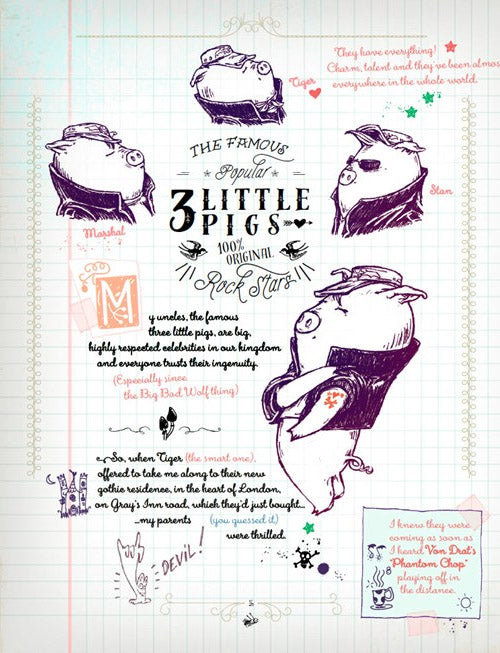 They have everything!
Charm, talent and they've been almos
everywhere in the whole world.
Tiger
THE FAMOUS
Popular
3 LITTLE
PIGS
100%
ORIGINAL
Rock Stars
Marshal
Stan
My uncles, the famous
three little pigs, are big,
highly respected celebrities in our kingdom
and everyone trusts their ingenuity.
(Especially since
the Big Bad Wolf thing)
So, when Tiger (the smart one),
offered to take me along to their new
gothic residence, in the heart of London,
on Gray's Inn road, which they'd just bought...
...my parents (you guessed it)
were thrilled.
DEVIL!
I knew they were
coming as soon as
I heard "Von Drat's
Phantom Chop"
playing off in
the distance.